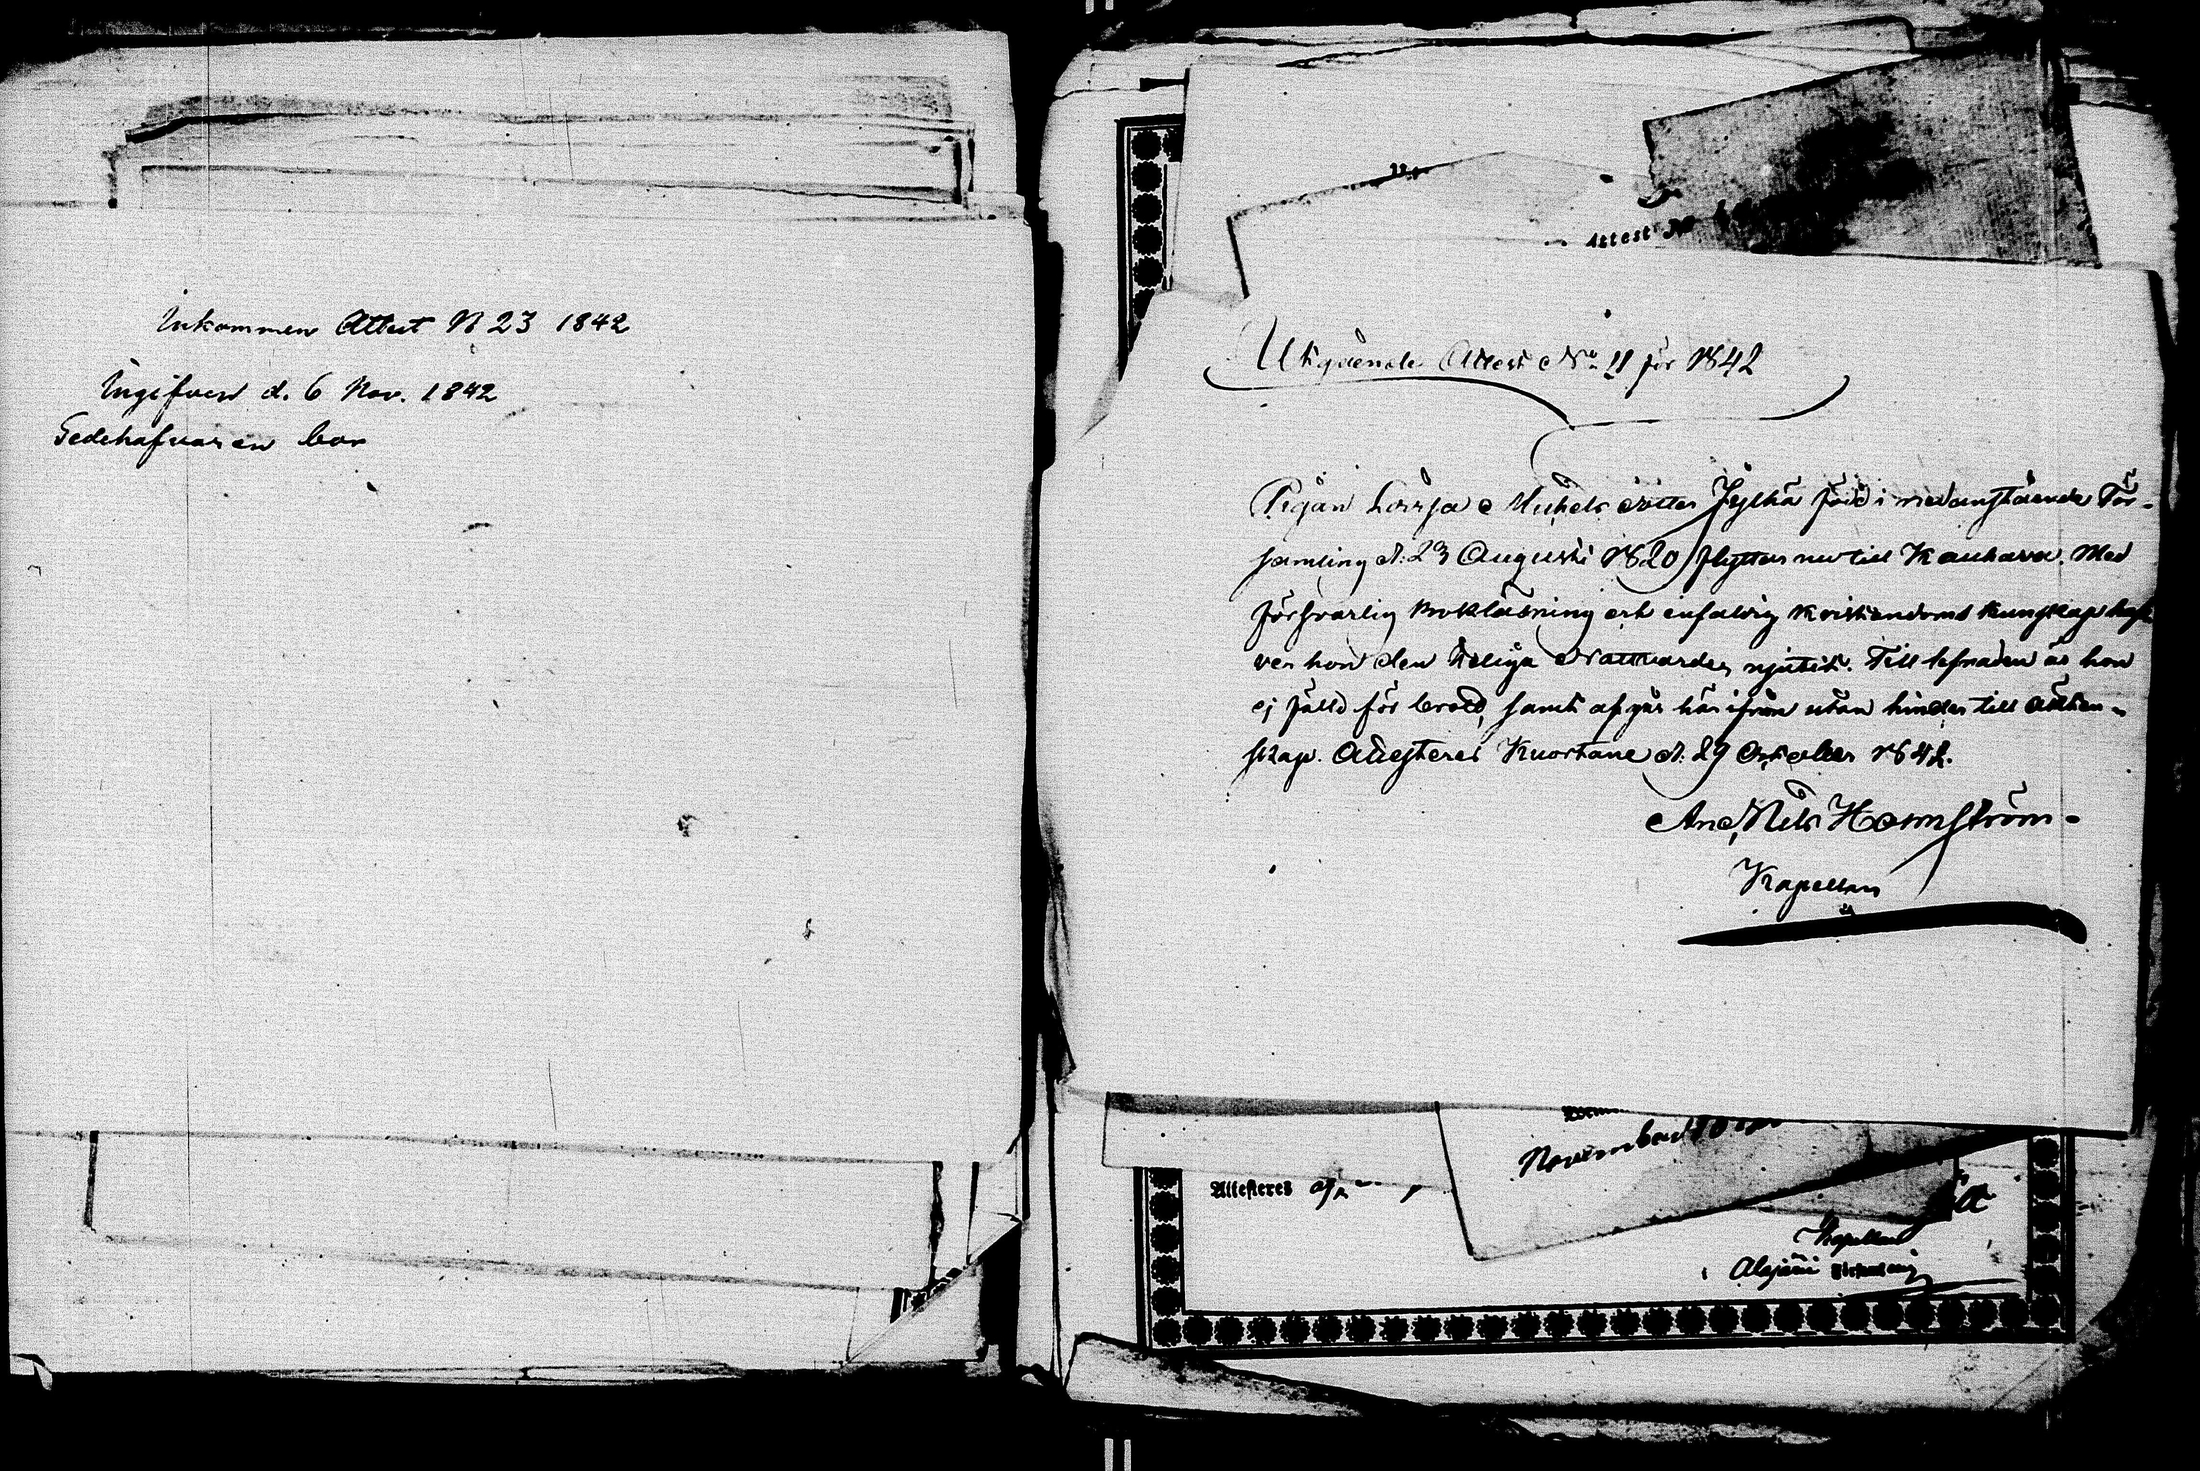 Inkommen Attest N 23 1842
Ingifven d. 6 Nov. 1842
Gedehafvaren bor
Attest No
Utgående Attest No 11 för 1842
Pigan Lovisa Michelsdotter Jylhä född i nedanstående För-
samling d. 23 Augusti 1820 flyttar nu till Kauhava. Med
försvarlig bokläsning och enfaldig Kristendoms kunskap haf-
ver hon den heliga Nattvarden njutit. Till lefnaden är hon
ej fälld för brott, samt afgår härifrån utan hinder till äkten-
skap. Attesteras Kuortane d. 29 October 1842.
And. Nils Holmström
Kapellan
November
Attesteres
Kapellan
Alajärvi